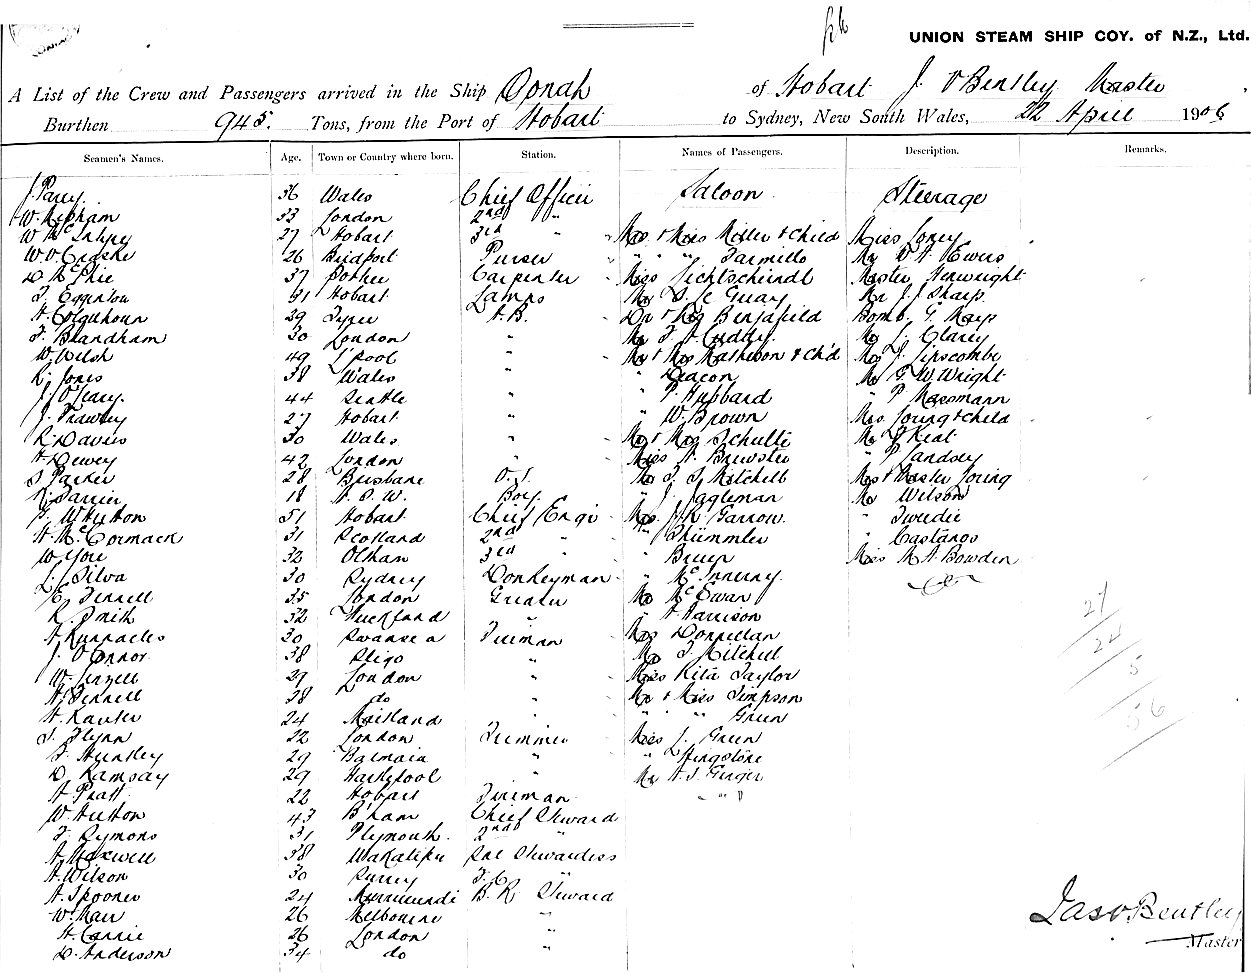 UNION STEAM SHIP COY. of N.Z., Ltd.
A List of the Crew and Passengers arrived in the Ship Oonah of Hobart J. Bentley Master
Burthen 945. Tons, from the Port of Hobart to Sydney, New South Wales, 22 April 1906
Seamen's Names. Age. Town or Country where born. Station. Names of Passengers. Description. Remarks.
J. Parry. 36 Wales Chief Officer Saloon Steerage
W. 33 London 2nd "
27 Hobart 3rd " Mrs & Miss Miller & Child Miss
26 Bridport Purser " " " Mr Ewers
D McPhie 37 Carpenter Miss Master
Hobart Lamps Mr Mr J. Sharp
A. Colquhoun 29 A.B. Dr & Mrs Benjafield Bomb. G. Mays
F. Blandham 30 London " Mr Cuddy. Mr L. Clarey
W. Welsh 49 L'pool " Mr & Mrs Mathewson & Ch'd Mrs J. Lipscombe
R. Jones 38 Wales " " Deacon Mr G. W. Wright
J. O'Leary. 44 Seattle " " P. Hubbard " P Massmann
J. Frawley 27 Hobart " " W. Brown Mrs & Child
R. Davies 30 Wales " Mr & Mrs Schulte Mr Keat
A. Dewey 42 London " Miss A. Brewster "
Parker 28 Brisbane O.S. Mr Mitchell Mrs & Master
18 N. S. W. Boy. " J. Mr Wilson
W Hutton 51 Hobart Chief Engr Mrs. J. R. Garrow. " Tweedie
A. McCormack 31 Scotland 2nd " " " Castanos
W. 32 Oldham 3rd " " Miss M. A. Bowden
J. Silva 30 Sydney Donkeyman " McInnerny.
E. Fennell 35 London Greaser Mr McEwan
R. Smith 32 Auckland " " A. Harrison
A. Runnacles 30 Swansea Fireman Mrs Donnellan
J. O'Connor. 38 Sligo " Mr F. Mitchell
W. 29 London " Miss Rita Taylor
A. Fennell 38 do " Mr & Miss Simpson
A. 24 Maitland " " " Green
Flynn 22 London Trimmer Miss J. Green
F. Huntley 29 Balmain " " Kingstone
D. Ramsay 29 Hartlepool " Mr A. J.
A. Pratt 22 Hobart Fireman " "
W. Hutton 43 B'ham Chief Steward
F. Symons 31 Plymouth. 2nd "
A. Maxwell 38 Wakatipu Sal Stewardess
A. Wilson 30 Surrey F.C. "
A. Spooner 24 Murrurundi B. R. Steward
W. Marr 26 Melbourne "
A. Carrie 26 London "
D. Anderson 34 do "
27
24
5
56
Jas Bentley
Master